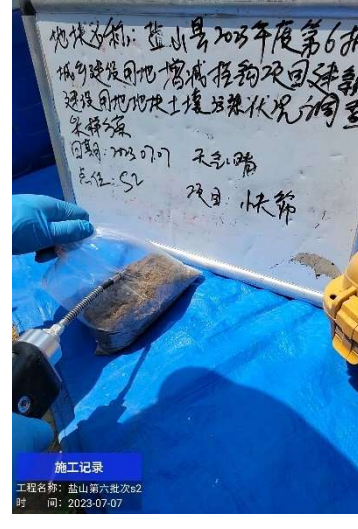 地块名称: 盐山县2023年度第6批
城乡建设用地增减挂钩项目建新
建设用地地块土壤污染状况调查
采样方案
日期: 2023.07.07 天气: 晴
点位: S2 项目: 快筛
施工记录
工程名称: 盐山第六批次s2
时 间: 2023-07-07